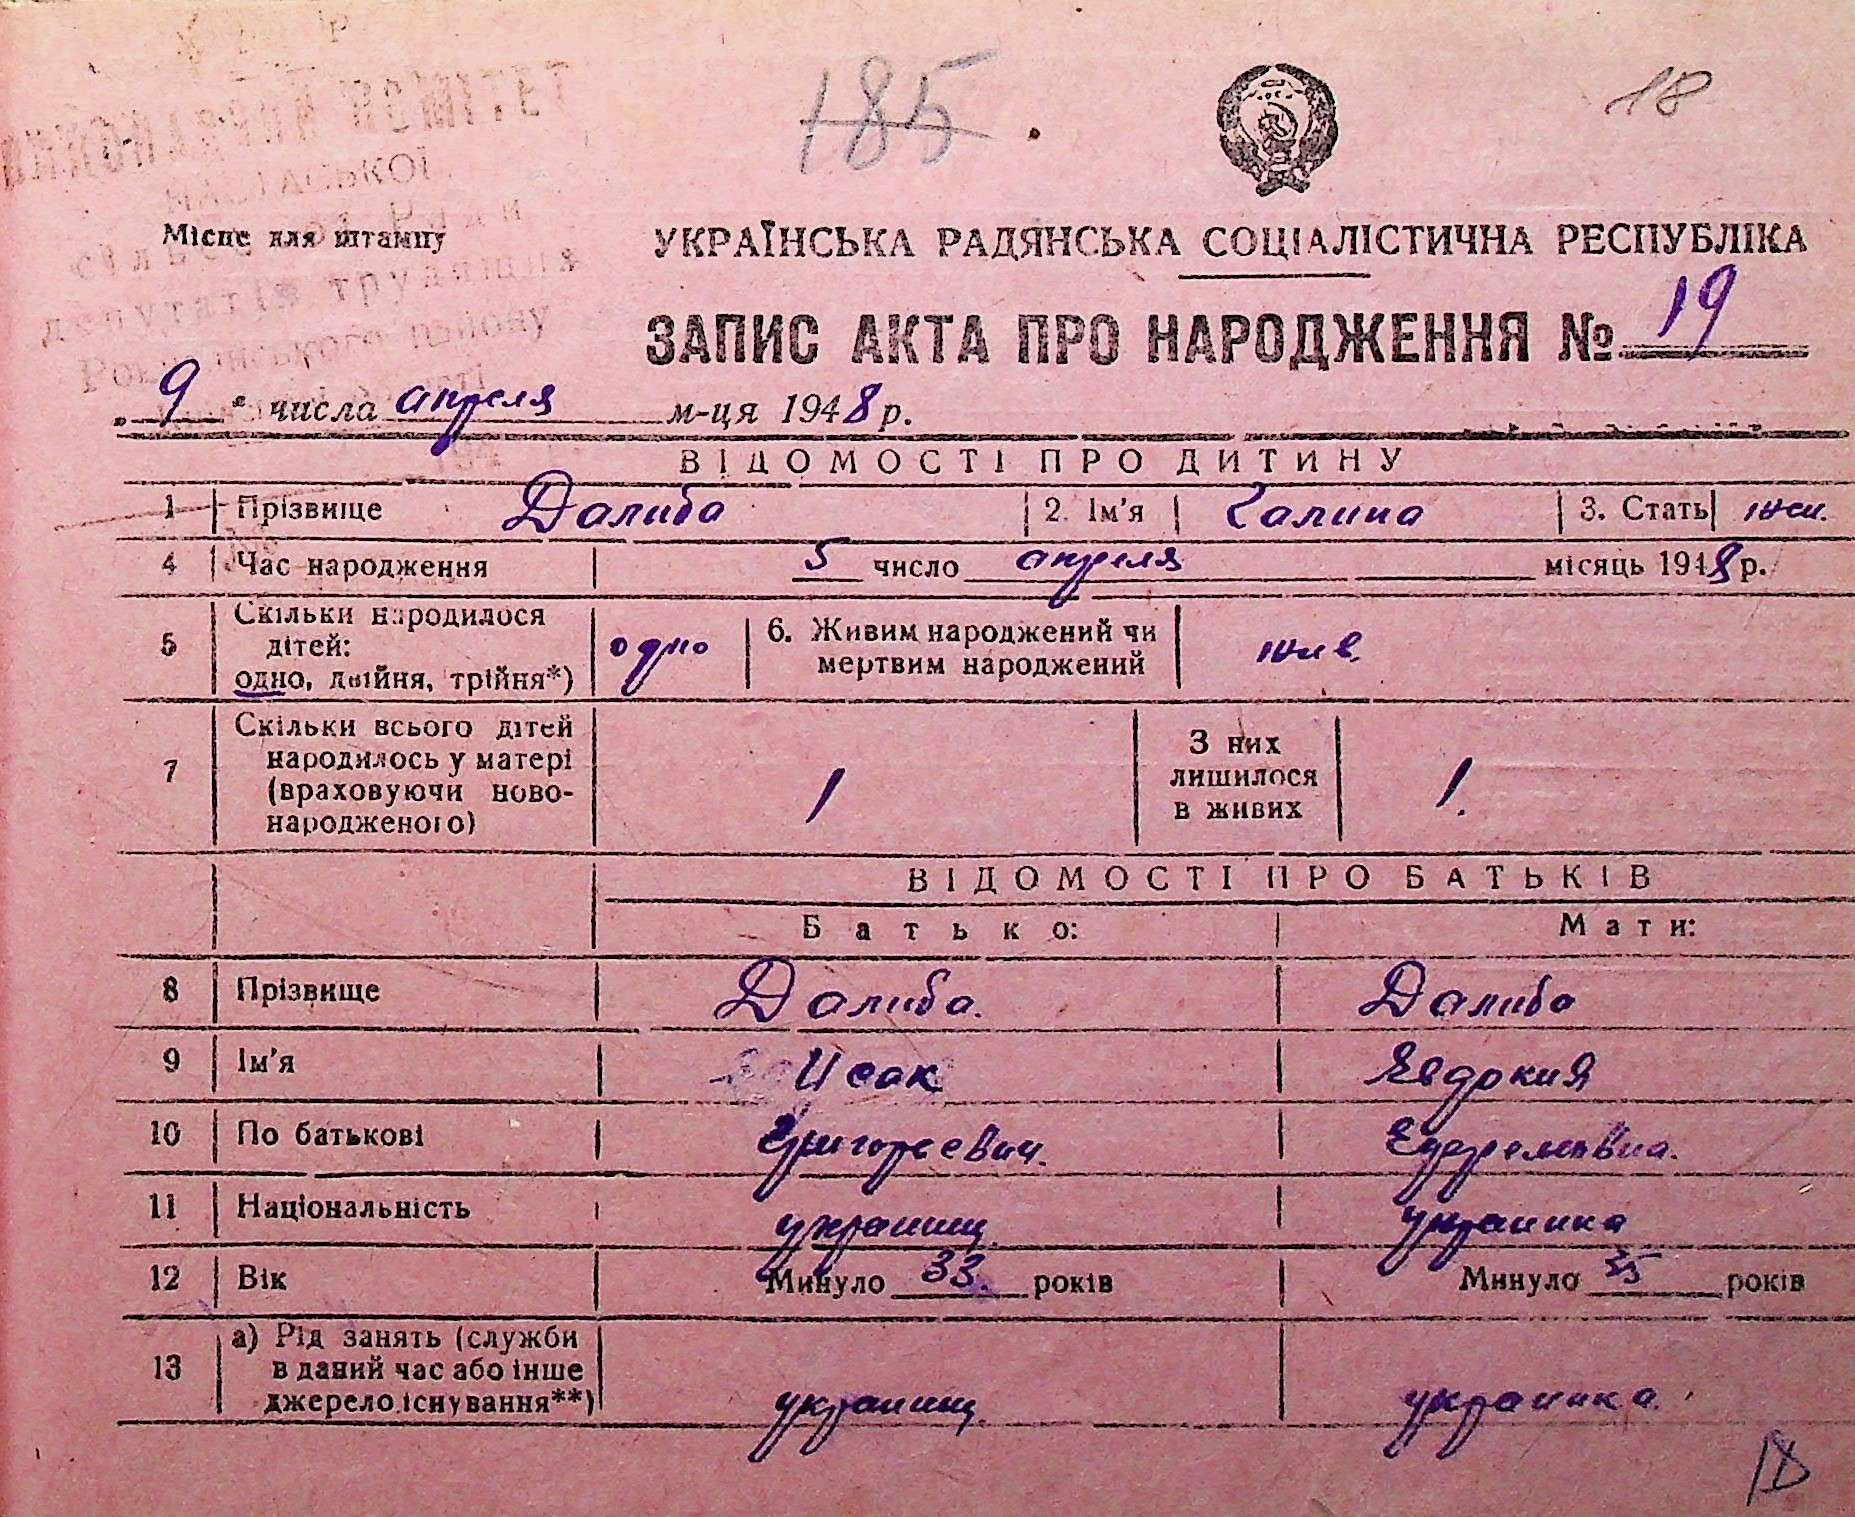 185
18
ВИКОНАВЧИЙ КОМІТЕТ
сільської Ради
депутатів трудящих
району
Місце для штампу
УКРАЇНСЬКА РАДЯНСЬКА СОЦІАЛІСТИЧНА РЕСПУБЛІКА
ЗАПИС АКТА ПРО НАРОДЖЕННЯ № 19
„ 9 " числа апреля м-ця 1948 р.
ВІДОМОСТІ ПРО ДИТИНУ
1 Прізвище Далиба 2. Ім'я Галина 3. Стать жен.
4 Час народження 5 число апреля місяць 1948 р.
5 Скільки народилося дітей: одно, двійня, трійня*) одно 6. Живим народжений чи мертвим народжений жив.
7 Скільки всього дітей народилось у матері (враховуючи ново-народженого) 1 З них лишилося в живих 1.
ВІДОМОСТІ ПРО БАТЬКІВ
Батько: Мати:
8 Прізвище Далиба. Далиба
9 Ім'я Исак Евдокия
10 По батькові Григорьевич. Ефремовна.
11 Національність украинец. украинка
12 Вік Минуло 33. років Минуло 35 років
13 а) Рід занять (служби в даний час або інше джерело існування**) украинец. украинка.
18